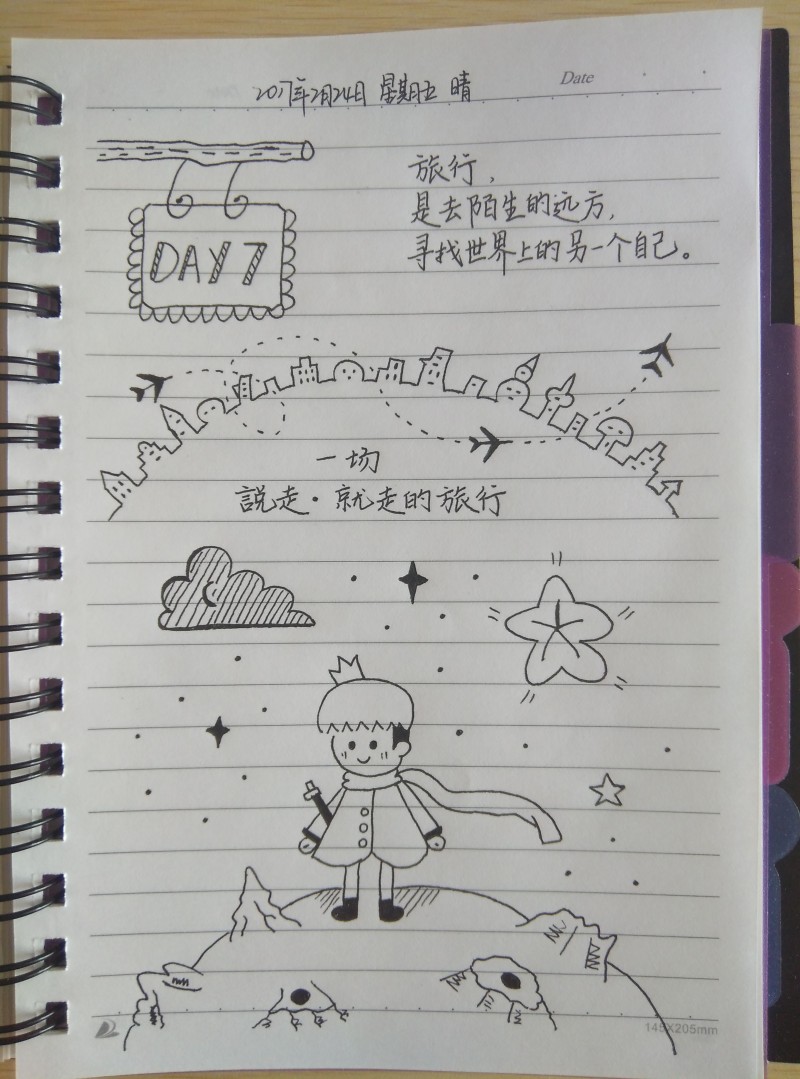 2017年2月24日 星期五 晴
Date
旅行，
是去陌生的远方，
寻找世界上的另一个自己。
DAY 7
一场
說走·就走的旅行
145X205mm